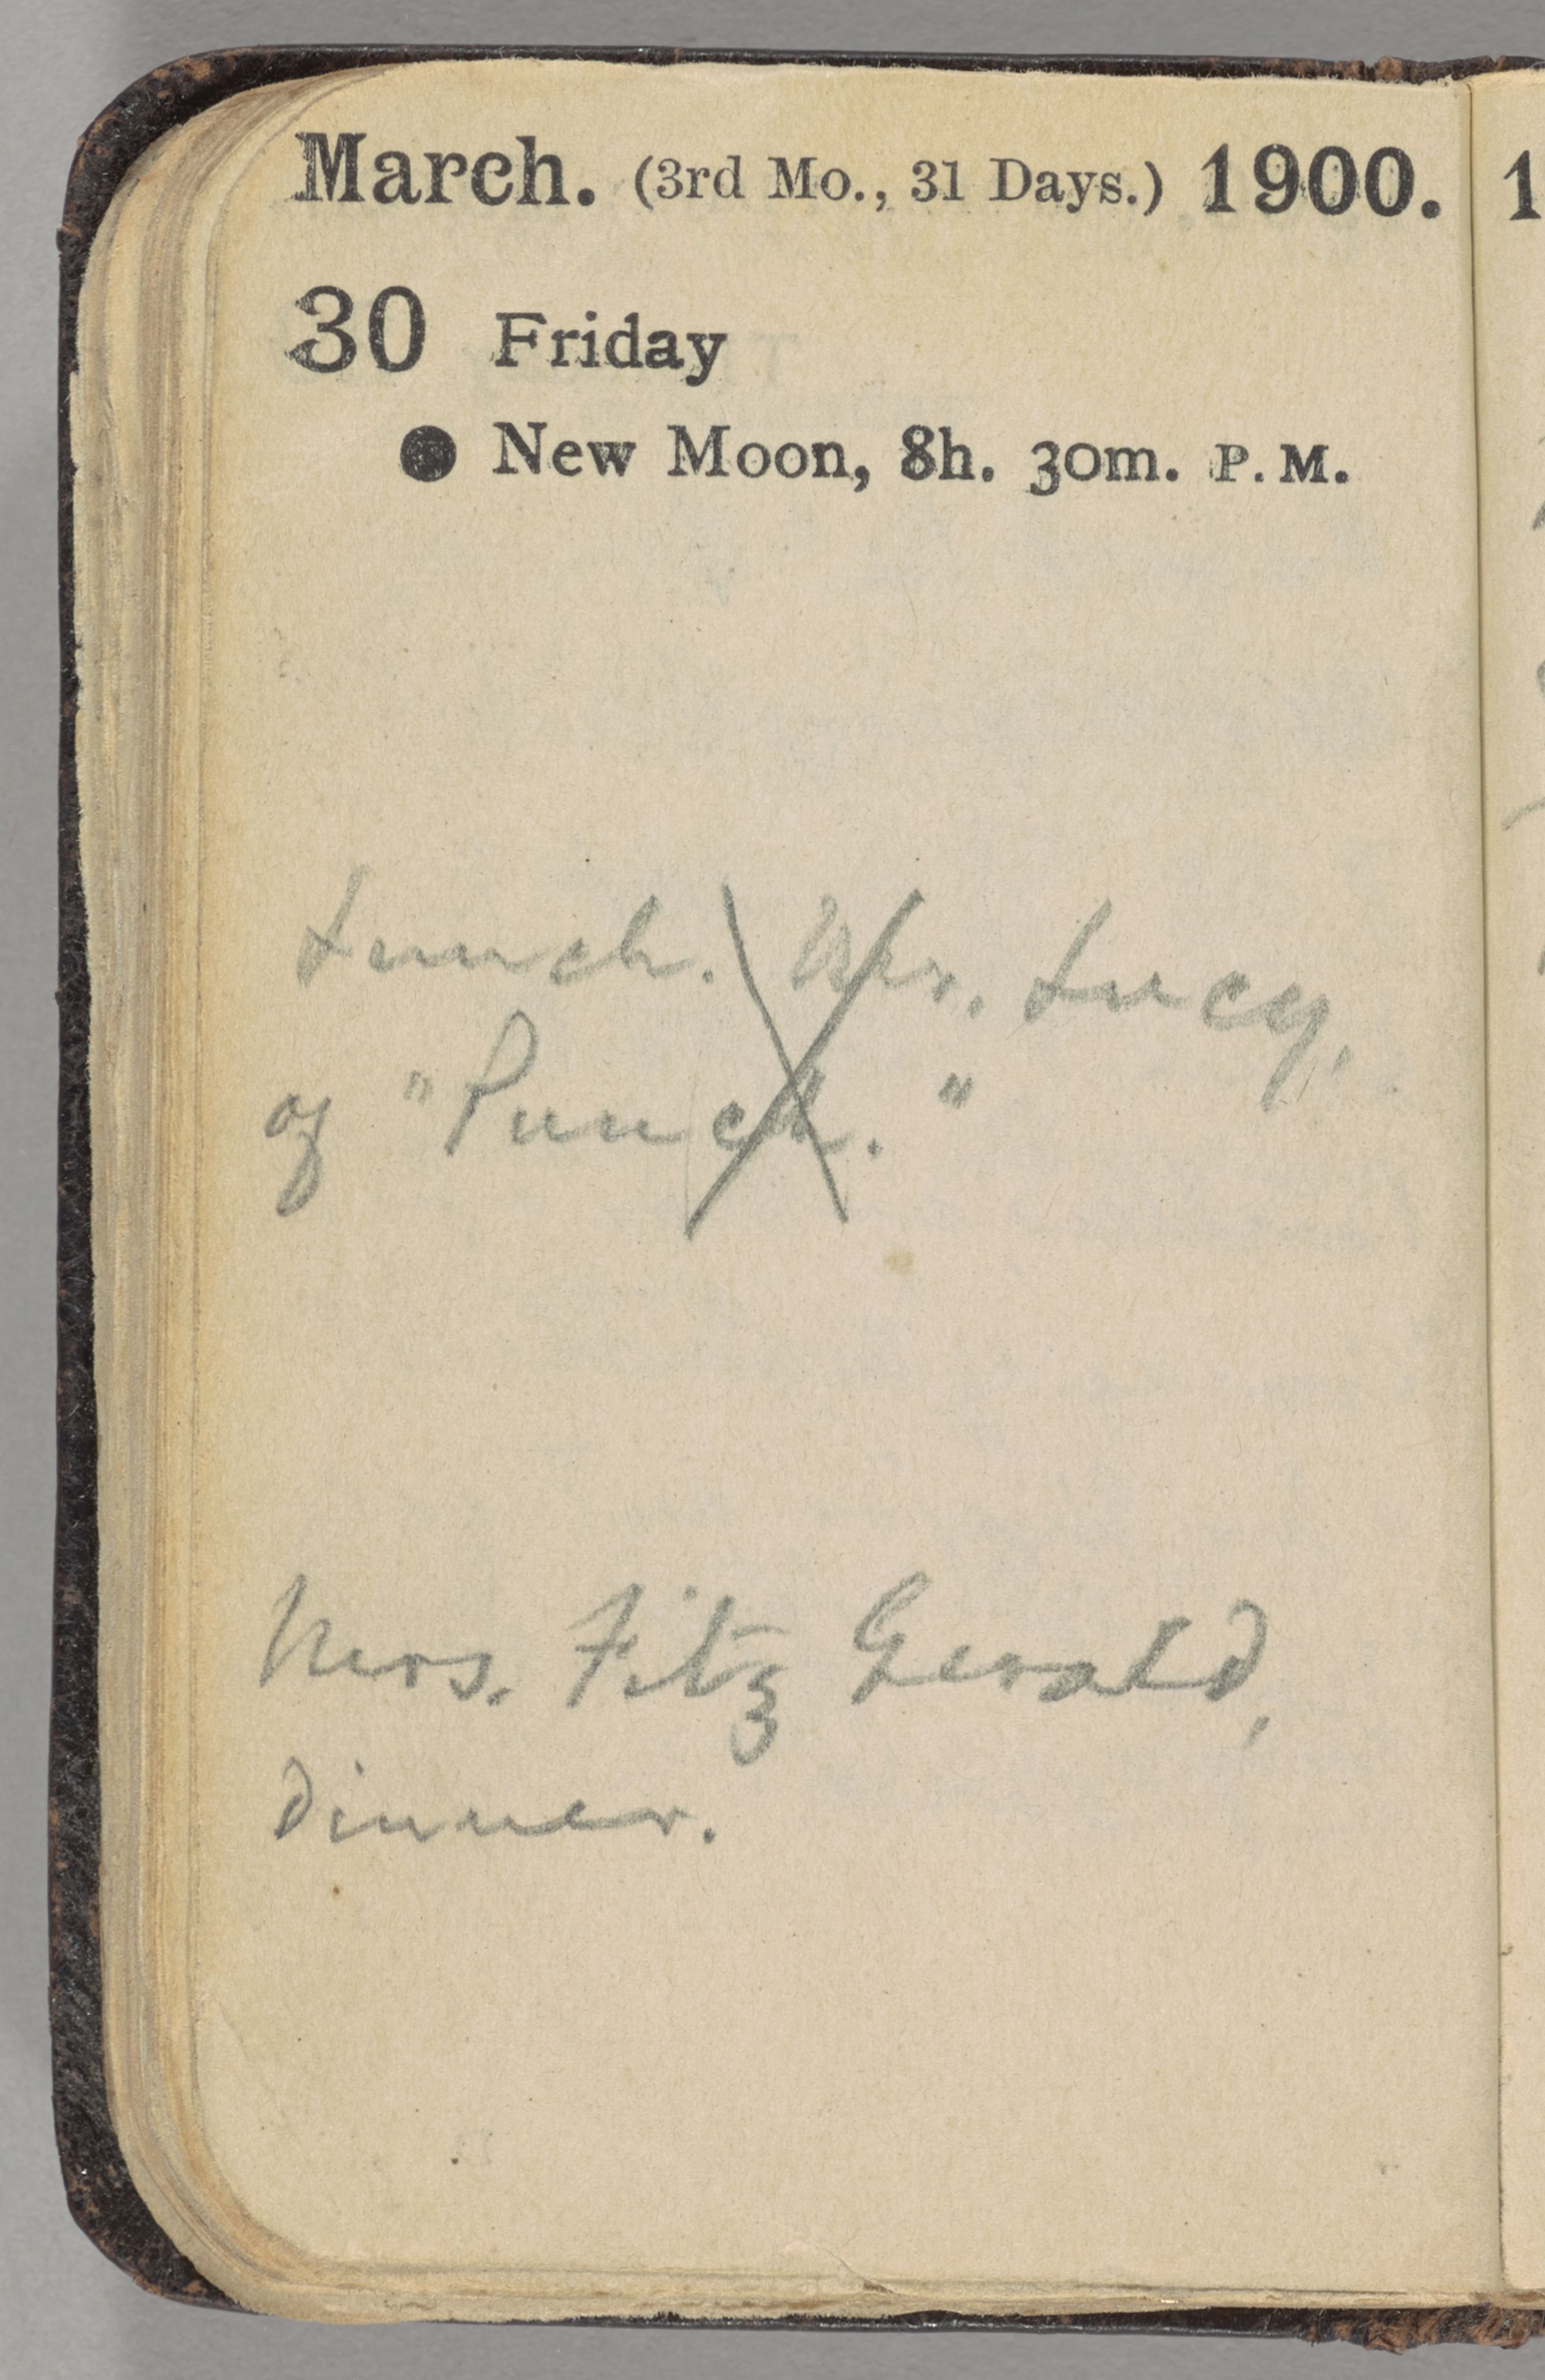 March. (3rd Mo., 31 Days.) 1900.
30 Friday
● New Moon, 8h. 30m. P.M.
Lunch. Mr. Lucy,
of "Punch."
Mrs. Fitz Gerald,
dinner.